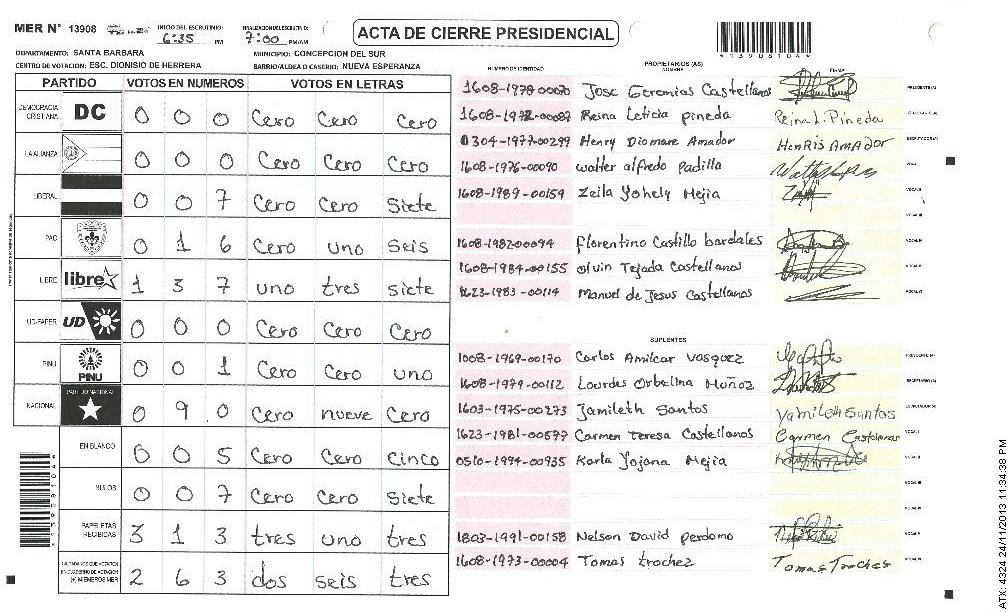 MER N° 13908
INICIO DEL ESCRUTINIO:
6:35 PM
7:00 PM/AM
ACTA DE CIERRE PRESIDENCIAL
*13908104*
DEPARTAMENTO: SANTA BARBARA
MUNICIPIO: CONCEPCION DEL SUR
CENTRO DE VOTACION: ESC. DIONISIO DE HERRERA
BARRIO/ALDEA O CASERIO: NUEVA ESPERANZA
PARTIDO VOTOS EN NUMEROS VOTOS EN LETRAS
DEMOCRACIA CRISTIANA DC 0 0 0 Cero Cero Cero
LA ALIANZA 0 0 0 Cero Cero Cero
LIBERAL 0 0 7 Cero Cero Siete
PAC 0 1 6 Cero uno seis
LIBRE libre 1 3 7 uno tres siete
UD-FAPER UD 0 0 0 Cero Cero Cero
PINU PINU 0 0 1 Cero Cero uno
NACIONAL PARTIDO NACIONAL 0 9 0 Cero nueve Cero
EN BLANCO 0 0 5 Cero Cero cinco
NULOS 0 0 7 Cero Cero Siete
PAPELETAS RECIBIDAS 3 1 3 tres uno tres
CIUDADANOS QUE VOTARON EN CUADERNO DE VOTACION (+) MIEMBROS MER 2 6 3 dos seis tres
NUMERO DE IDENTIDAD PROPIETARIOS (AS) NOMBRE FIRMA
1608-1978-00070 Jose Geremias Castellanos PRESIDENTE (A)
1608-1972-00087 Reina Leticia pineda Reina L. Pineda SECRETARIO (A)
0304-1977-00299 Henry Diomare Amador HENRIS AMADOR ESCRUTADOR (A)
1608-1976-00090 walter alfredo Padilla VOCAL I
1608-1989-00159 Zeila Yohely Mejia VOCAL II
VOCAL III
1608-1982-00094 florentino Castillo bardales VOCAL IV
1608-1984-00155 olvin Tejada Castellanos VOCAL V
1623-1983-00114 Manuel de Jesus Castellanos VOCAL VI
SUPLENTES
1008-1969-00170 Carlos Amilcar vasquez PRESIDENTE (A)
1608-1979-00112 Lourdes Orbelina Muñoz SECRETARIO (A)
1603-1975-00273 Jamileth Santos Yamileth Santos ESCRUTADOR (A)
1623-1981-00577 Carmen Teresa Castellanos Carmen Castellanos VOCAL I
0510-1994-00935 Karla Yojana Mejia VOCAL II
VOCAL III
VOCAL IV
1803-1991-00158 Nelson David perdomo VOCAL V
1608-1973-00004 Tomas trochez Tomas Troches VOCAL VI
ATX: 4324 24/11/2013 11:34:38 PM